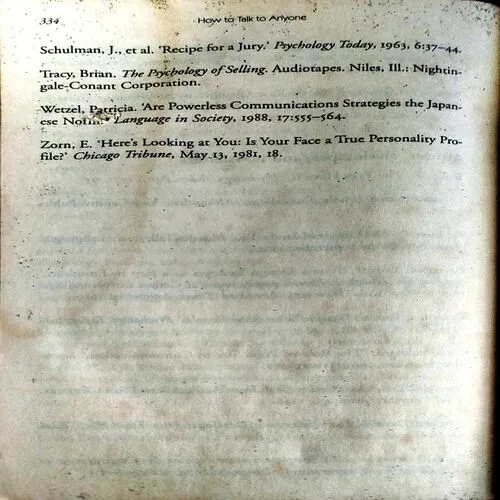 334
How to Talk to Anyone
Schulman, J., et al. 'Recipe for a Jury.' Psychology Today, 1963, 6:37–44.
Tracy, Brian. The Psychology of Selling. Audiotapes. Niles, Ill.: Nightin-
gale-Conant Corporation.
Wetzel, Patricia. 'Are Powerless Communications Strategies the Japan-
ese Norm?' Language in Society, 1988, 17:555–564.
Zorn, E. 'Here's Looking at You: Is Your Face a True Personality Pro-
file?' Chicago Tribune, May 13, 1981, 18.